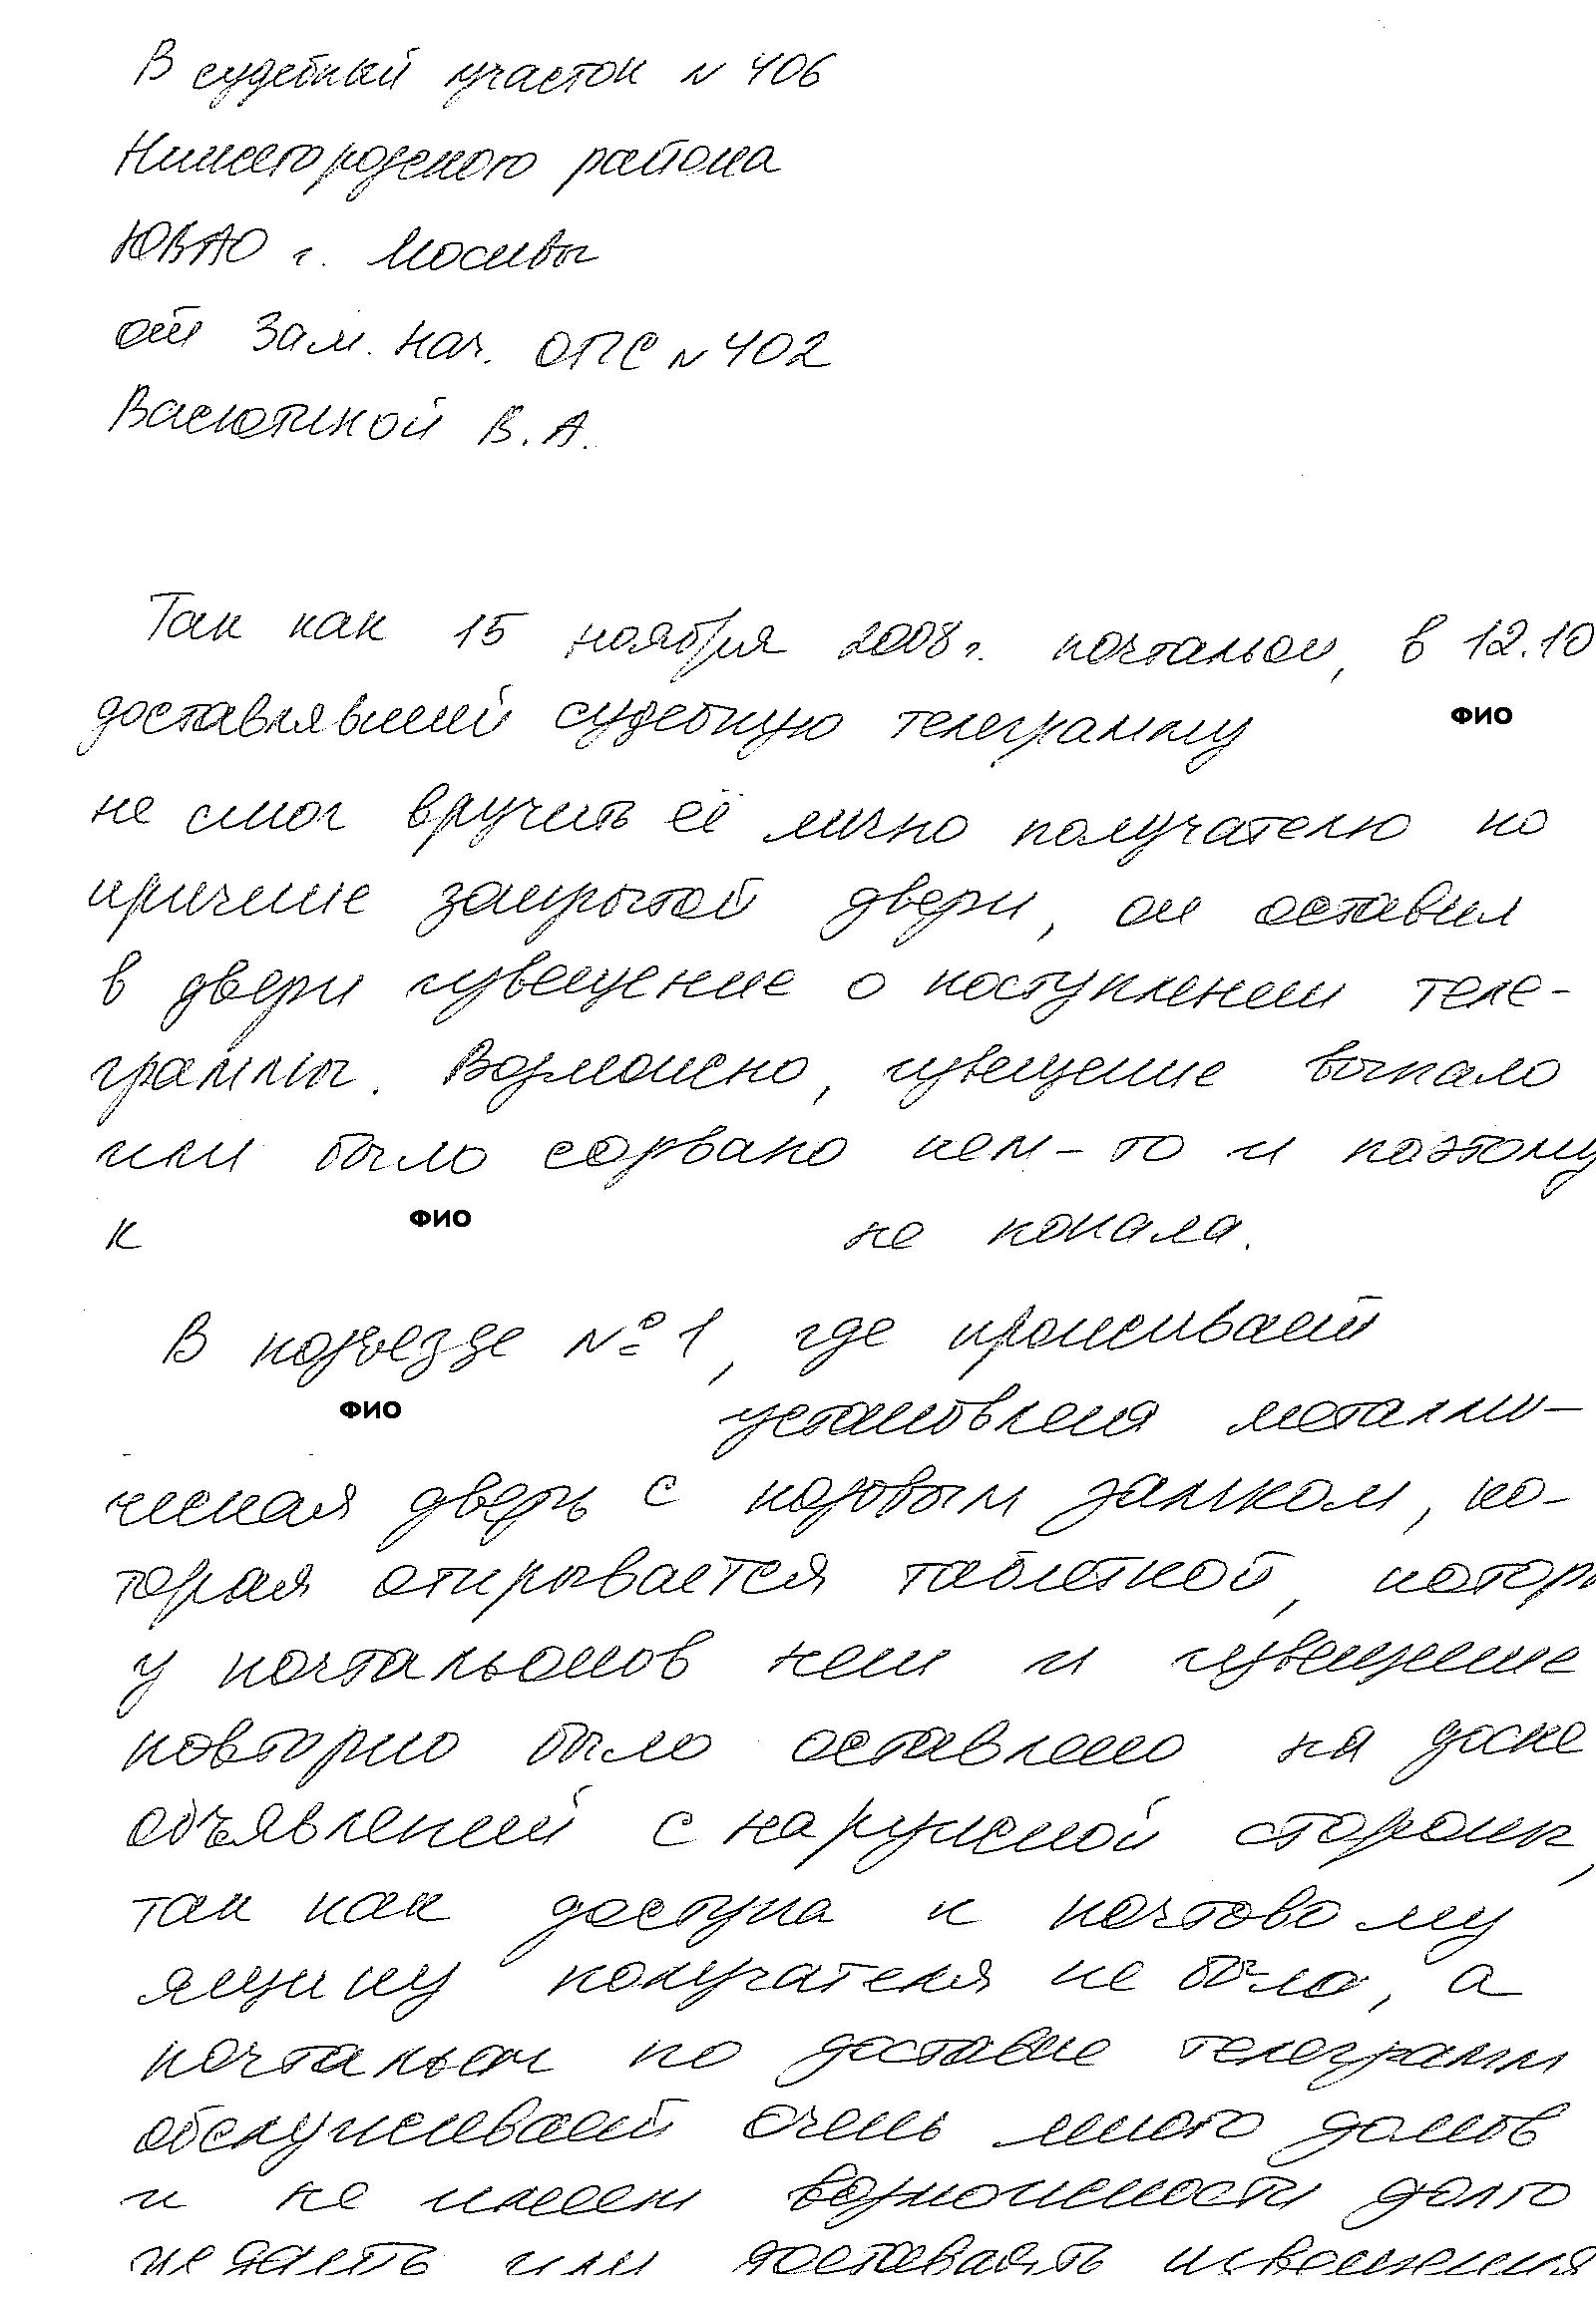 В судебный участок N 406
Нижегородского района
ЮВАО г. Москвы
от Зам. нач. ОПС N 402
Васютиной В.А.
Так как 15 ноября 2008 г. почтальон, в 12.10
доставлявший судебную телеграмму ФИО
не смог вручить её лично получателю по
причине закрытой двери, он оставил
в двери извещение о поступлении теле-
граммы. Возможно, извещение выпало
или было сорвано кем-то и поэтому
к ФИО не попала.
В подъезде № 1, где проживает
ФИО установлена металли-
ческая дверь с кодовым замком, ко-
торая открывается таблеткой, которы
у почтальонов нет и извещение
повторно было оставлено на доске
объявлений с наружной стороны,
так как доступа к почтовому
ящику получателя не было, а
почтальон по доставке телеграмм
обслуживает очень много домов
и не имеет возможности долго
искать или доставлять извещения